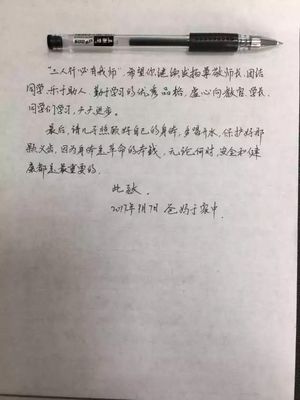 “三人行必有我师”,希望你继续发扬尊敬师长、团结
同学、乐于助人、勤于学习的优秀品格,虚心向教官、学长、
同学们学习,天天进步。
最后,请儿子照顾好自己的身体,多喝开水,保护好那
颗义齿,因为身体是革命的本钱,无论何时,安全和健
康都是最重要的。
此致
2017年9月7日 爸妈于家中